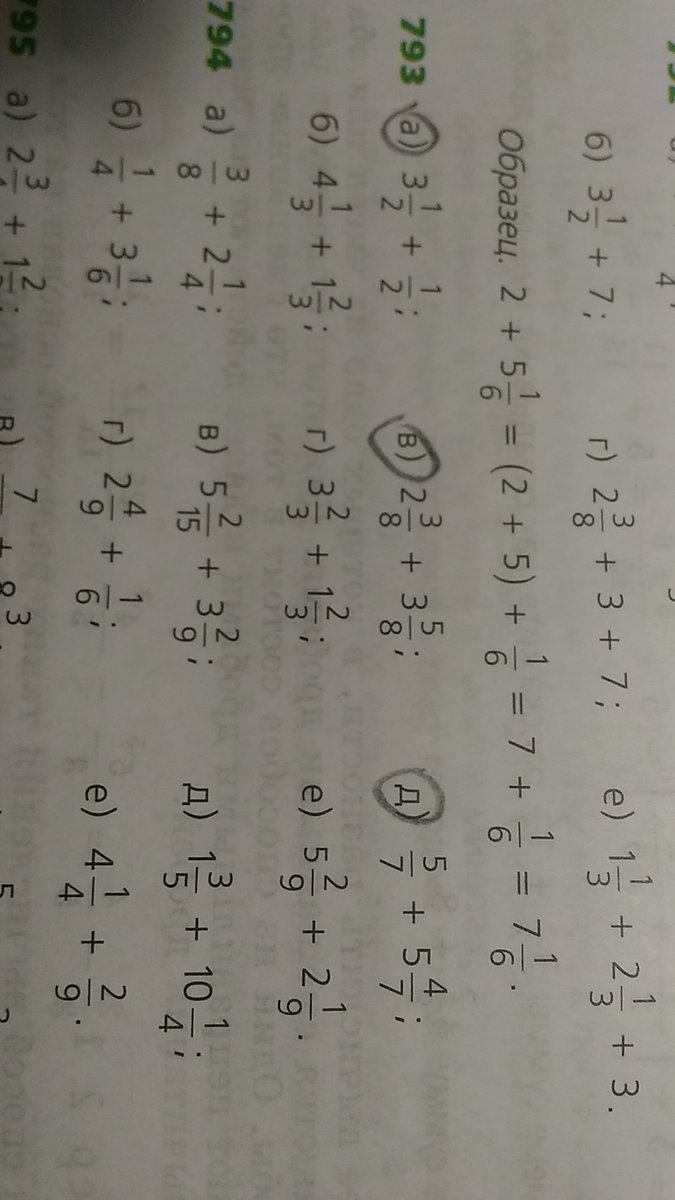 б) 3 1/2 + 7; г) 2 3/8 + 3 + 7; е) 1 1/3 + 2 1/3 + 3.
Образец. 2 + 5 1/6 = (2 + 5) + 1/6 = 7 + 1/6 = 7 1/6.
793 а) 3 1/2 + 1/2; в) 2 3/8 + 3 5/8; д) 5/7 + 5 4/7;
б) 4 1/3 + 1 2/3; г) 3 2/3 + 1 2/3; е) 5 2/9 + 2 1/9.
794 а) 3/8 + 2 1/4; в) 5 2/15 + 3 2/9; д) 1 3/5 + 10 1/4;
б) 1/4 + 3 1/6; г) 2 4/9 + 1/6; е) 4 1/4 + 2/9.
795 а)